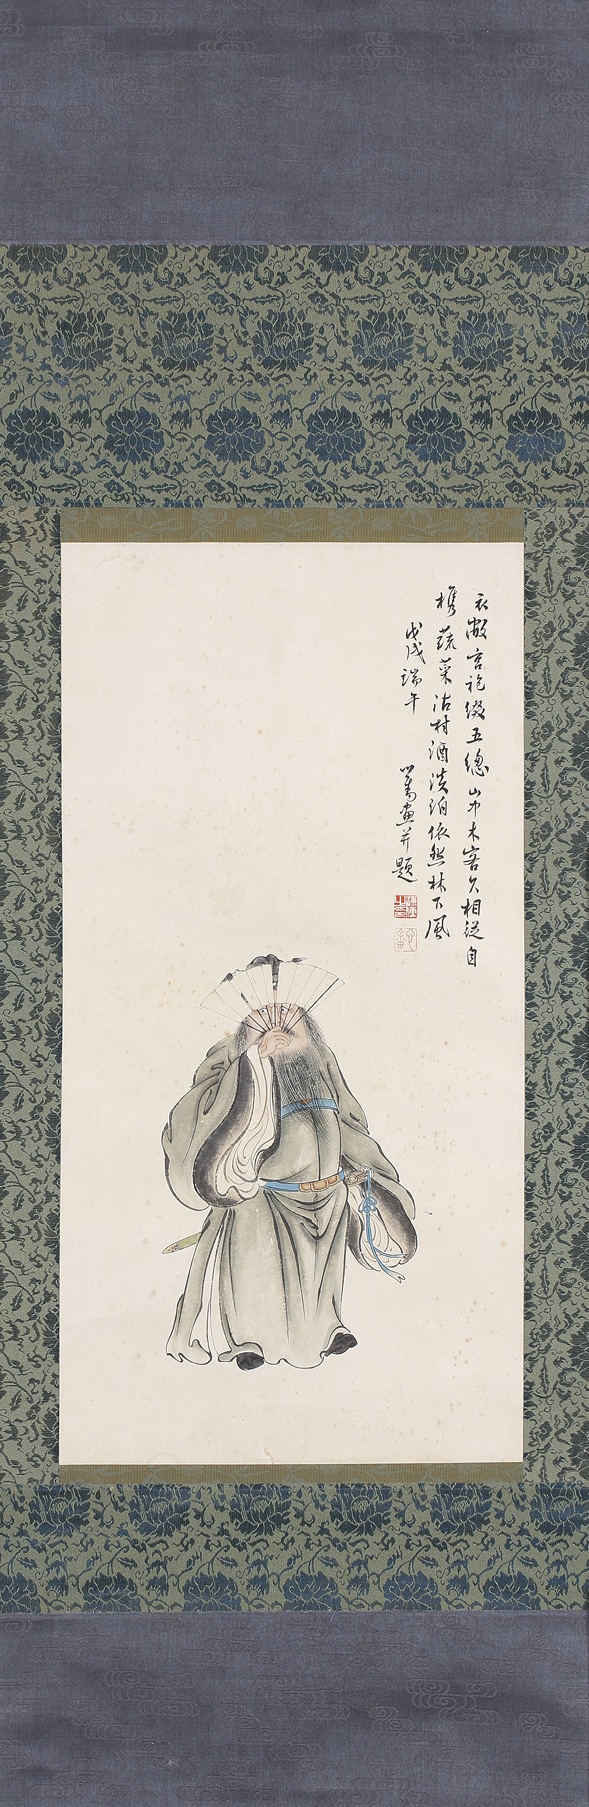 衣敝宮袍綴五總山中木客久相從自
携蔬菜沽村酒淡泊依然林下風
戊戌端午
心畬畫并題